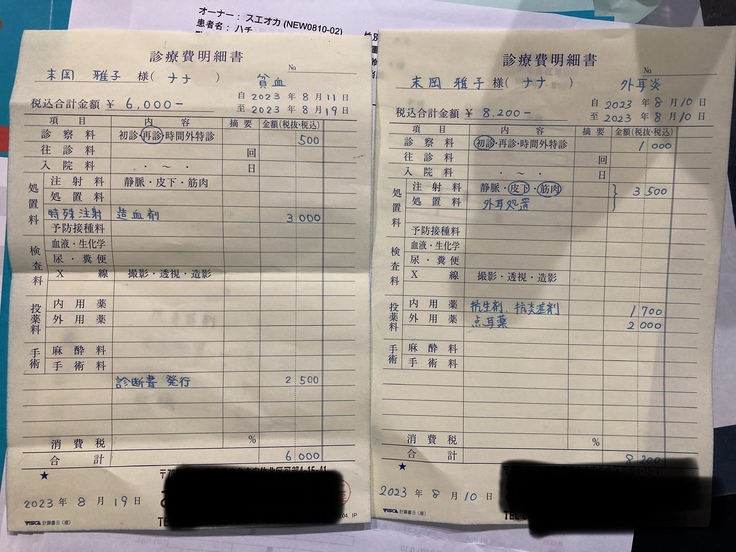 オーナー： スエオカ (NEW0810-02)
患者名： ハチ
診療費明細書
№
末岡 雅子 様 ( ナナ ) 貧血
税込合計金額 ¥ 6,000-
自 2023 年 8 月 11 日
至 2023 年 8 月 19 日
項 目 内 容 摘 要 金額(税抜・税込)
診 察 料 初診・再診・時間外特診 500
往 診 料 回
入 院 料 ・ 〜 ・ 日
処置料
注 射 料 静脈・皮下・筋肉
処 置 料
特殊注射 造血剤 3 000
予防接種料
検査料
血液・生化学
尿・糞便
X 線 撮影・透視・造影
投薬料
内 用 薬
外 用 薬
手術
麻 酔 料
手 術 料
診断書 発行 2 500
消 費 税 %
合 計 6 000
★
2023 年 8 月 19 日
TEL
計算書⑬(横)
診療費明細書
№
末岡 雅子 様 ( ナナ ) 外耳炎
税込合計金額 ¥ 8,200-
自 2023 年 8 月 10 日
至 2023 年 8 月 10 日
項 目 内 容 摘 要 金額(税抜・税込)
診 察 料 初診・再診・時間外特診 1 000
往 診 料 回
入 院 料 ・ 〜 ・ 日
処置料
注 射 料 静脈・皮下・筋肉 3 500
処 置 料 外耳処置
予防接種料
検査料
血液・生化学
尿・糞便
X 線 撮影・透視・造影
投薬料
内 用 薬 抗生剤、抗炎症剤 1 700
外 用 薬 点耳薬 2 000
手術
麻 酔 料
手 術 料
消 費 税 %
合 計 8 200
★
2023 年 8 月 10 日
TEL